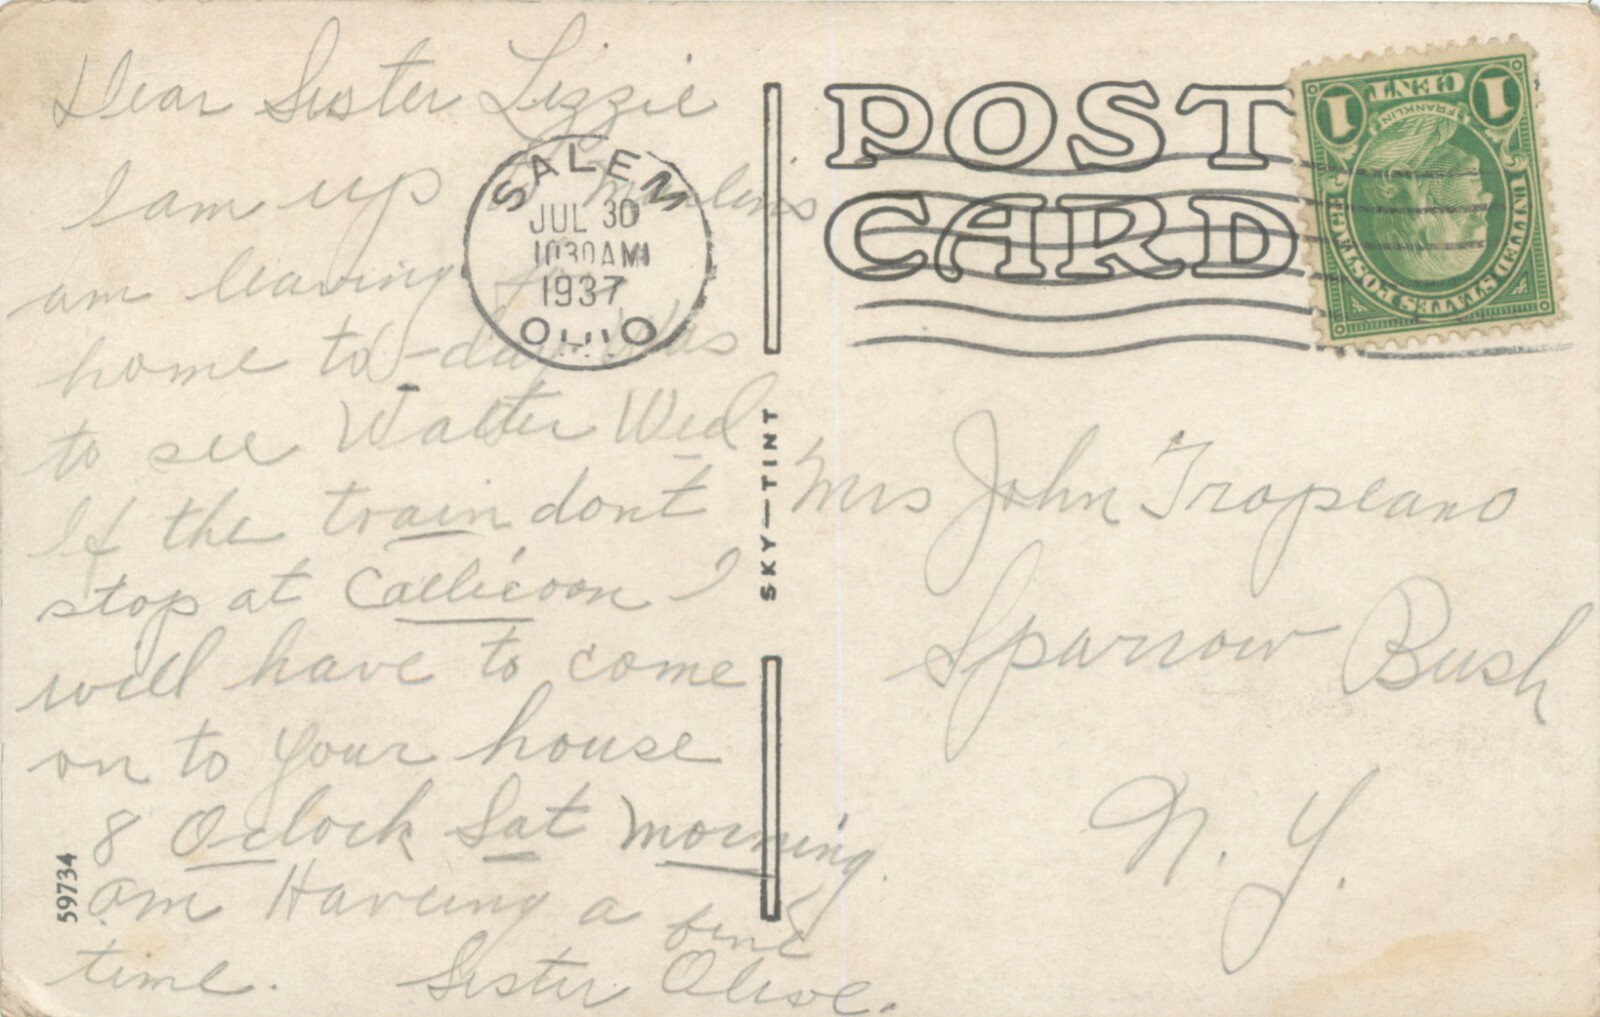 Dear Sister Lizzie
I am up
am leaving for
home to-day Was
to see Walter Wed
If the train dont
stop at Callicoon I
will have to come
on to your house
8 Oclock Sat morning.
am Having a fine
time. Sister Olive.
59734
SALEM
JUL 30
1030AM
1937
OHIO
SKY-TINT
POST
CARD
1 CENT 1
FRANKLIN
UNITED STATES POSTAGE
Mrs John Tropeano
Sparrow Bush
N. Y.